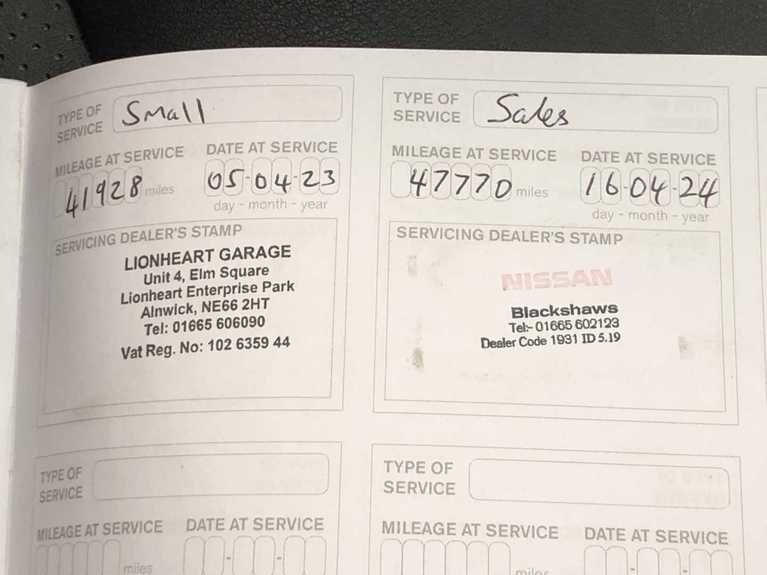 TYPE OF SERVICE Small
MILEAGE AT SERVICE DATE AT SERVICE
41928 miles 05-04-23
day - month - year
SERVICING DEALER'S STAMP
LIONHEART GARAGE
Unit 4, Elm Square
Lionheart Enterprise Park
Alnwick, NE66 2HT
Tel: 01665 606090
Vat Reg. No: 102 6359 44
TYPE OF SERVICE Sales
MILEAGE AT SERVICE DATE AT SERVICE
47770 miles 16-04-24
day - month - year
SERVICING DEALER'S STAMP
NISSAN
Blackshaws
Tel:- 01665 602123
Dealer Code 1931 ID 5.19
TYPE OF
SERVICE
MILEAGE AT SERVICE DATE AT SERVICE
miles
TYPE OF
SERVICE
MILEAGE AT SERVICE DATE AT SERVICE
miles